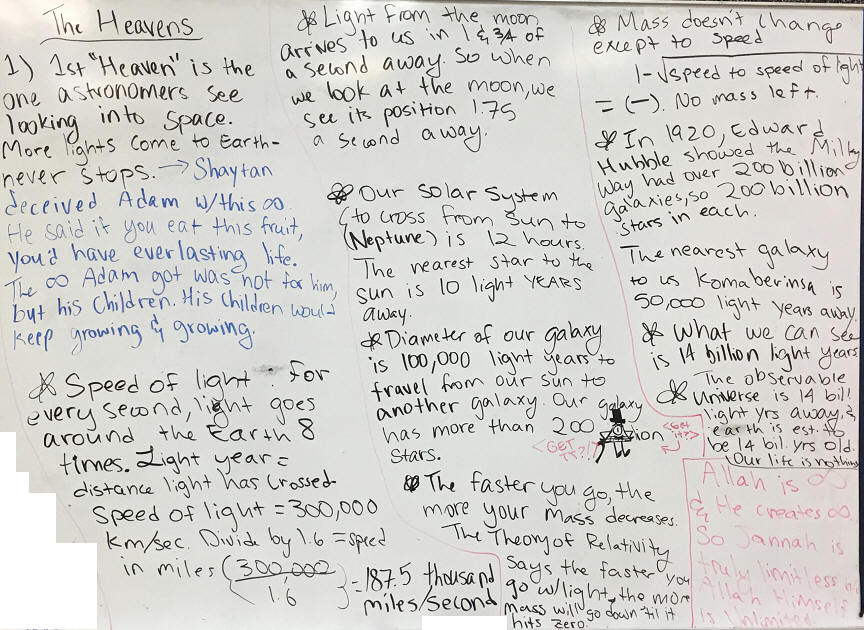 The Heavens
1) 1st "Heaven" is the
one astronomers see
looking into space.
More lights come to Earth-
never stops. → Shaytan
deceived Adam w/this ∞.
He said if you eat this fruit,
you'd have everlasting life.
The ∞ Adam got was not for him,
but his children. His children would
keep growing & growing.
* Speed of light: For
every second, light goes
around the Earth 8
times. Light year =
distance light has crossed.
Speed of light = 300,000
km/sec. Divide by 1.6 = speed
in miles (300,000
1.6) = 187.5 thousand
miles/second
* Light from the moon
arrives to us in 1 & 3/4 of
a second away. So when
we look at the moon, we
see its position 1.75
a second away.
* Our Solar System
(to cross from Sun to
(Neptune) is 12 hours.
The nearest star to the
sun is 10 light YEARS
away.
* Diameter of our galaxy
is 100,000 light years to
travel from our sun to
another galaxy. Our galaxy
has more than 200 ion
stars.
<GET IT?!?
<GET it?>
* The faster you go, the
more your mass decreases.
The Theory of Relativity
says the faster you
go w/light, the more
mass will go down 'til it
hits zero.
* Mass doesn't change
except to speed
1-√speed to speed of light
= (-). No mass left.
* In 1920, Edward
Hubble showed the Milky
Way had over 200 billion
galaxies, so 200 billion
stars in each.
The nearest galaxy
to us Komaberinsa is
50,000 light years away.
* What we can see
is 14 billion light years
* The observable
Universe is 14 bill
light yrs away, &
earth is est. to
be 14 bil. yrs old.
Our life is nothing
Allah is ∞
& He creates ∞.
So Jannah is
truly limitless
Allah Himself
is Unlimited.